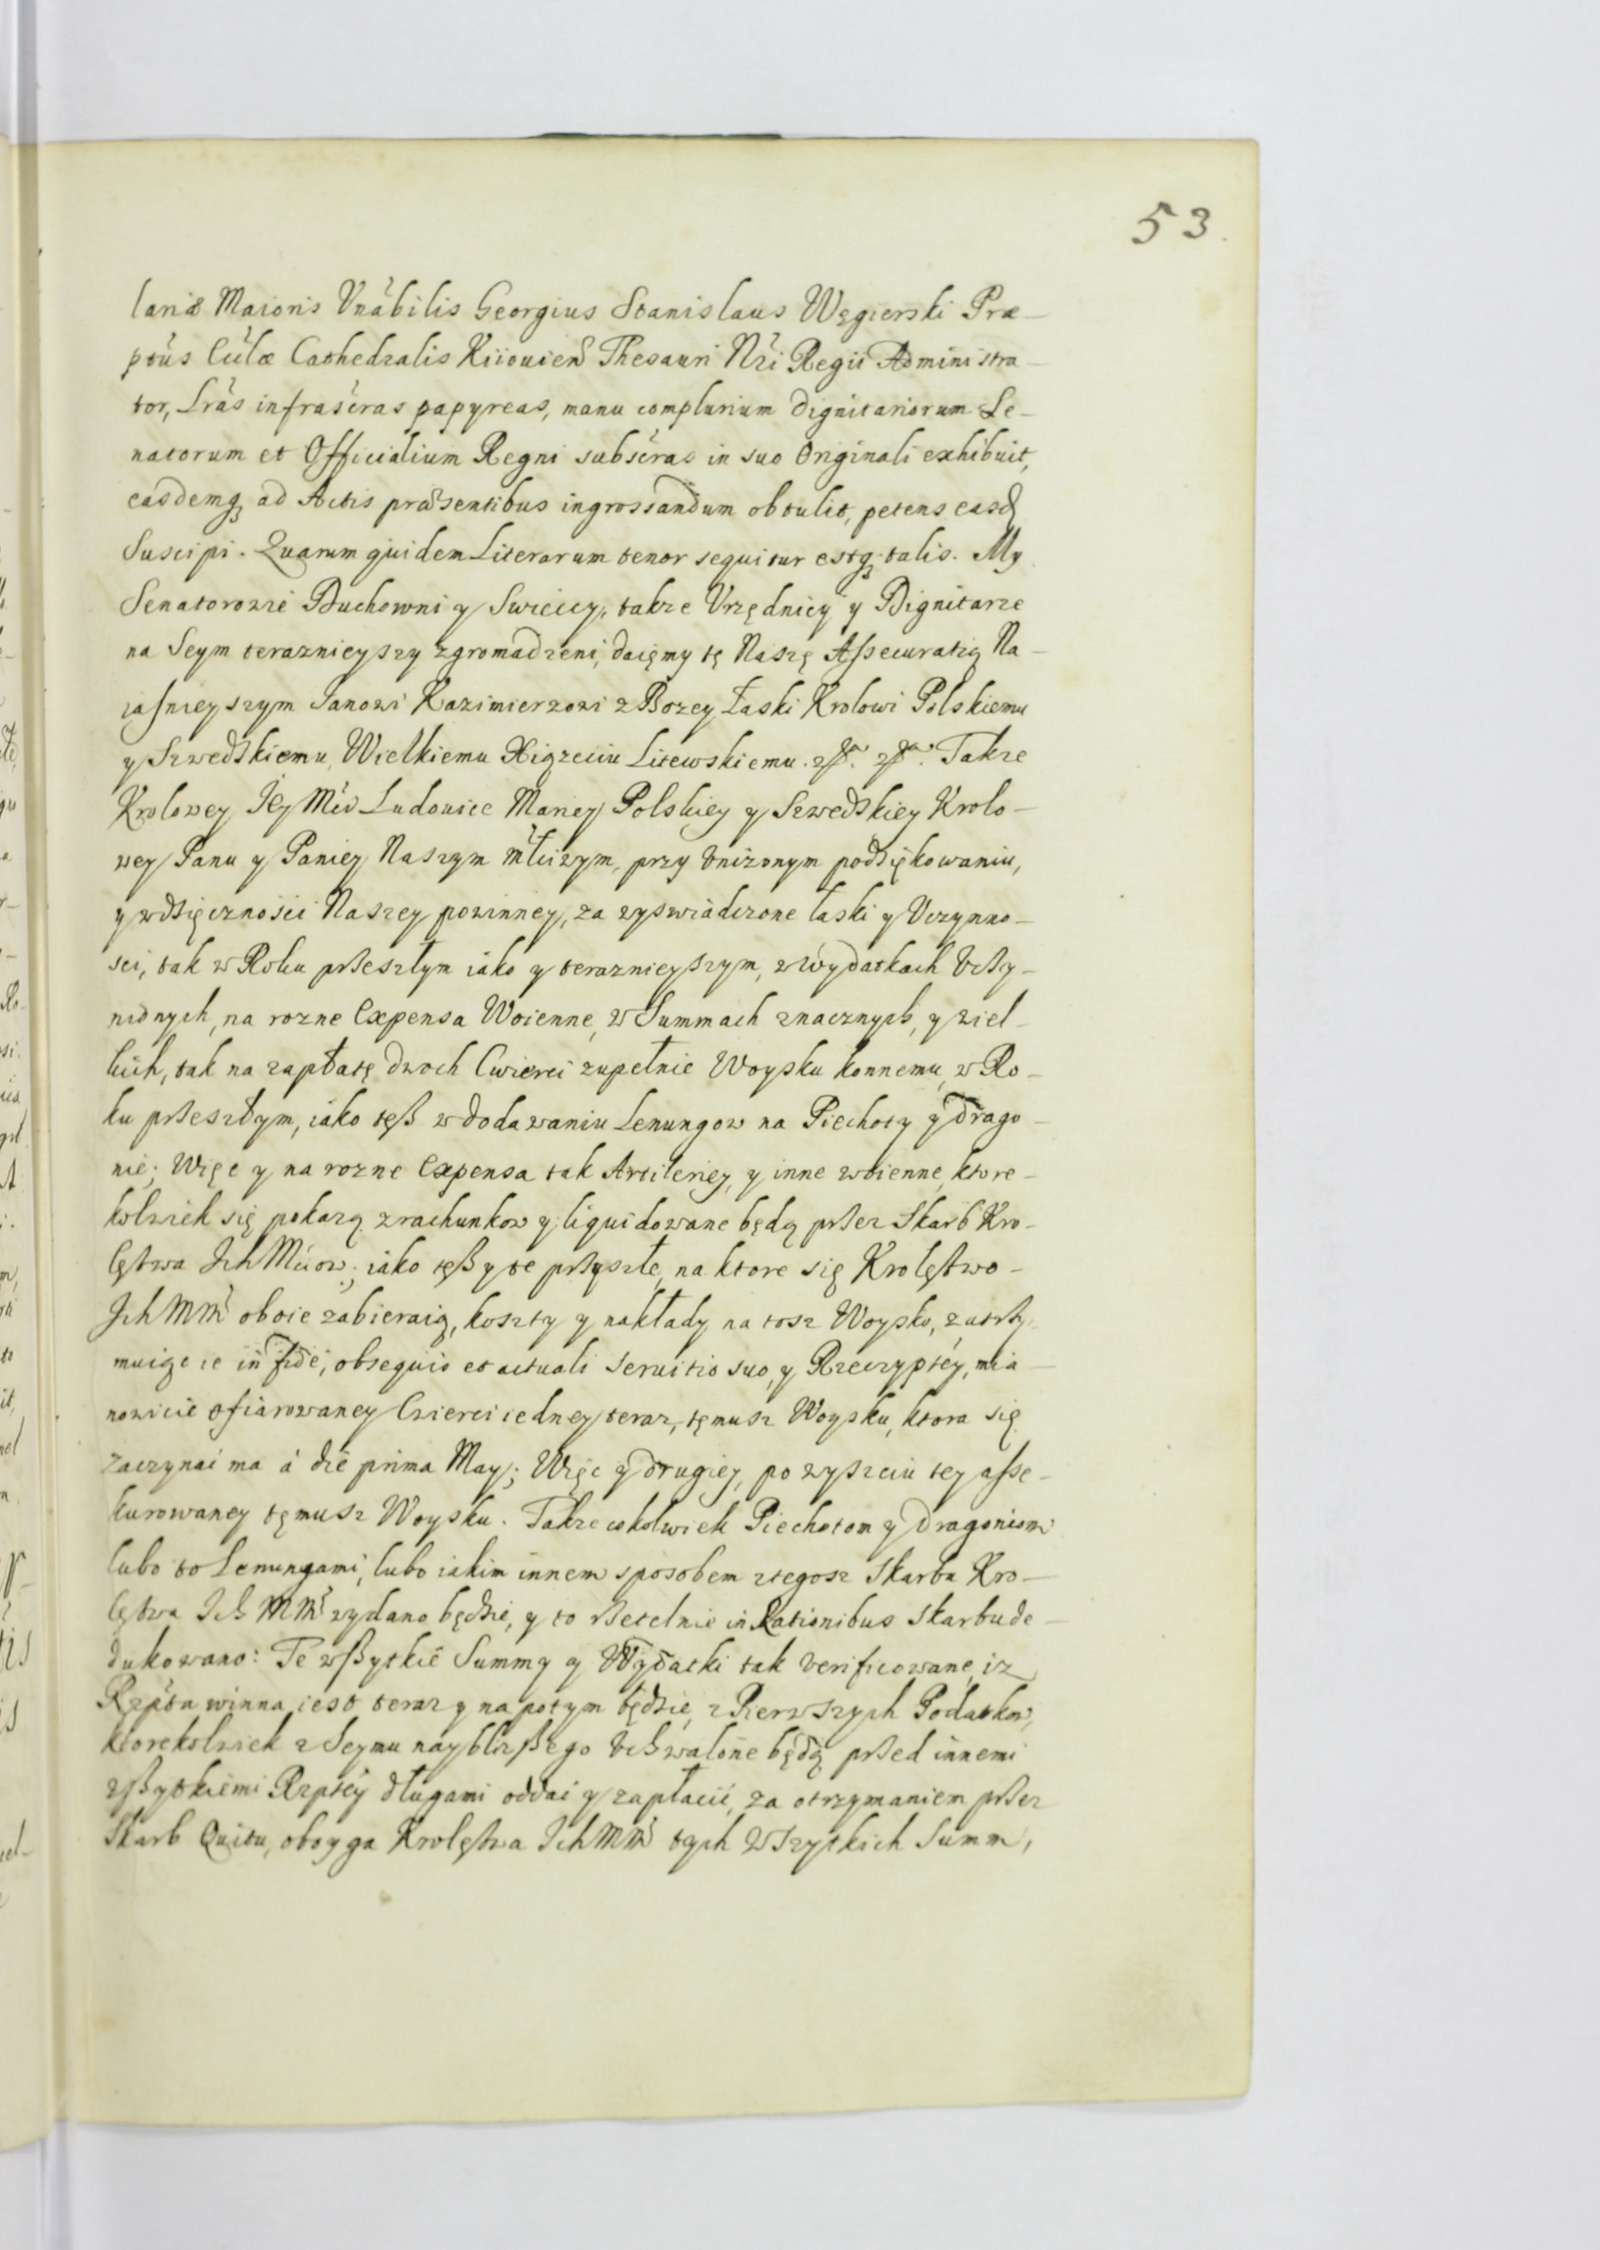 53.
lariæ Maioris Vnabilis Georgius Stanislaus Węgierski Præ-
ptus Culæ Cathedralis Kiiouien Thesauri Nri Regii Administra-
tor, Lras infrascras papyreas, manu complurium Dignitariorum Se-
natorum et Officialium Regni subscras in suo Originali exhibuit,
easdemq ad Actis præsentibus ingrossandum obtulit, petens easd
Suscipi. Quarum quidem Literarum tenor sequitur estq talis. My
Senatorowie Duchowni y Swieccy, takze Vrzędnicy y Dignitarze
na Seym teraznieyszy zgromadzeni, daięmy tę Naszę Assecuratią Na-
iasnieyszym Janowi Kazimierzowi z Bozey Łaski Krolowi Polskiemu
y Szwedskiemu, Wielkiemu Xiązęciu Litewskiemu. Takze
Krolowey Jey Mci Ludouice Mariey Polskiey y Szwedskiey Krolo-
wey Panu y Paniey Naszym Młciwym, przy Vnizonym podziękowaniu,
y wdzięcznosci Naszey powinney, za wyswiadczone łaski y Vczynno-
sci, tak w Roku przeszłym iako y teraznieyszym, w Wydatkach Vczy-
nionych, na rozne Expensa Woienne, w Summach znacznych, y wiel-
kich, tak na zapłatę dwoch Cwierci zupełnie Woysku konnemu, w Ro-
ku przeszłym, iako tęß w dodawaniu Lenungow na Piechoty y drago-
nie; Więc y na rozne Expensa tak Artileriey, y inne woienne, ktore-
kolwiek się pokazą z rachunkow y liquidowane będą przez Skarb Kro-
lęstwa Ich Mciow; iako tęß y te przyszłe, na ktore się Krolęstwo-
Ich MM oboie zabieraią, koszty y nakłady na tosz Woysko, zatrzy-
muiąc ie in fide, obsequio et actuali seruitio suo, y Rzeczyptey, mia-
nowicie ofiarowaney Cwierci iedney teraz, tęmusz Woysku, ktora się
zaczynać ma á die prima May; Więc y drugiey, po wyszciu tey asse-
kurowaney tęmusz Woysku. Takze cokolwiek Piechotom y Dragoniom
lubo to Lenungami, lubo iakim innem sposobem z tegosz Skarbu Kro-
lęstwa Ich MM wydano będzie, y to rzetelnie in Rationibus Skarbu de-
dukowano: Te wßytkie Summy y Wydatki tak verificowane, iz
Rzpta winna iest teraz y na potym będzie, z Pierwszych Podatkow,
ktorekolwiek z Seymu nayblizßego Vchwalone będą przed innemi
wßytkiemi Rzptey długami oddać y zapłacić, za otrzymaniem przez
Skarb Quitu, oboyga Krolęstwa Ich MM tych Wszytkich Summ,